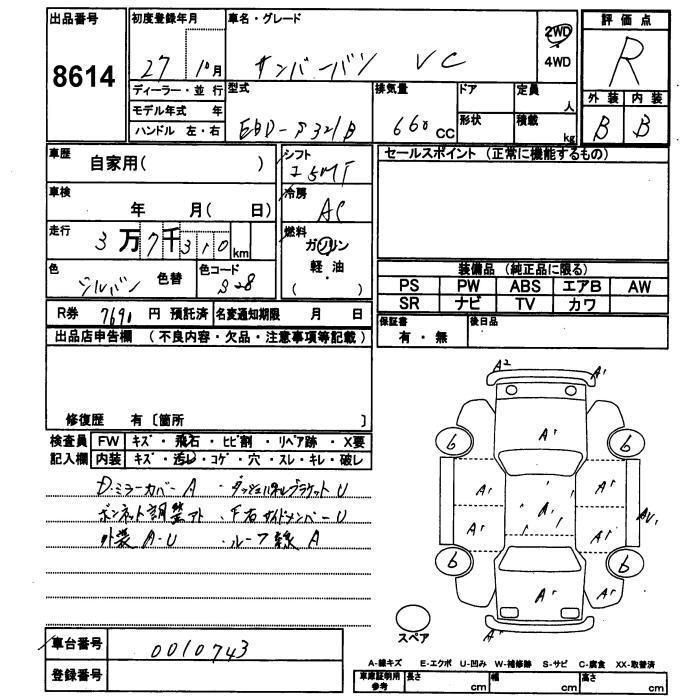 出品番号
8614
初度登録年月
27 10月
車名・グレード
サンバーバン VC
2WD
4WD
評価点
R
外装 内装
B B
ディーラー・並行
モデル年式 年
ハンドル 左・右
型式
EBD-S321B
排気量
660 CC
ドア
形状
定員
人
積載
kg
車歴
自家用( )
車検
年 月( 日)
走行
3万7千310km
色
シルバー
色替
色コード
S28
シフト
F5MT
冷房
AC
燃料
ガソリン
軽・油
( )
セールスポイント (正常に機能するもの)
装備品 (純正品に限る)
PS PW ABS エアB AW
SR ナビ TV カワ
保証書
有・無
後日品
R券 7690 円 預託済 名変通知期限 月 日
出品店申告欄 (不良内容・欠品・注意事項等記載)
修復歴 有〔箇所 〕
検査員 FW キズ・飛石・ヒビ割・リペア跡・X要
記入欄 内装 キズ・汚レ・コゲ・穴・スレ・キレ・破レ
D.ミラーカバーA ・ダッシュパネルブラケットU
ボンネット調整アト ・F右サイドメンバーU
外装A-U ・ルーフ線A
A2 A1
A1
6 6
A1 A1
A1
A1 A1
AU1
6 6
A1 A1 A1
A1
スペア
車台番号 0010743
登録番号
A-線キズ E-エクボ U-凹み W-補修跡 S-サビ C-腐食 XX-取替済
車庫証明用
参考
長さ cm 幅 cm 高さ cm